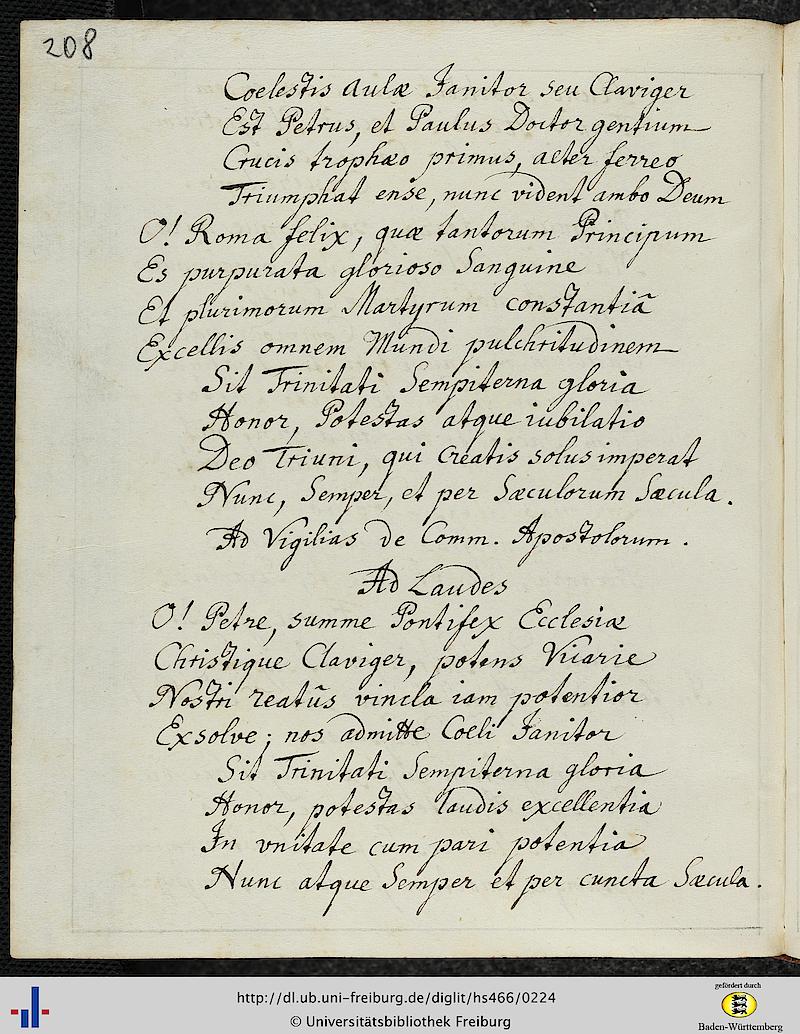 208
Coelestis Aulæ Janitor seu Claviger
Est Petrus, et Paulus Doctor gentium
Crucis trophæo primus, alter ferreo
Triumphat ense, nunc vident ambo Deum
O! Roma felix, quæ tantorum Principum
Es purpurata glorioso Sanguine
Et plurimorum Martyrum constantiâ
Excellis omnem Mundi pulchritudinem
Sit Trinitati Sempiterna gloria
Honor, Potestas atque iubilatio
Deo Triuni, qui Creatis solus imperat
Nunc, Semper, et per Sæculorum Sæcula.
Ad Vigilias de Comm. Apostolorum.
Ad Laudes
O! Petre, summe Pontifex Ecclesiæ
Christique Claviger, potens Vicarie
Nostri reatûs vincla iam potentior
Exsolve; nos admitte Coeli Janitor
Sit Trinitati Sempiterna gloria
Honor, potestas laudis excellentia
In vnitate cum pari potentia
Nunc atque Semper et per cuncta Sæcula.
http://dl.ub.uni-freiburg.de/diglit/hs466/0224
© Universitätsbibliothek Freiburg
gefördert durch
Baden-Württemberg